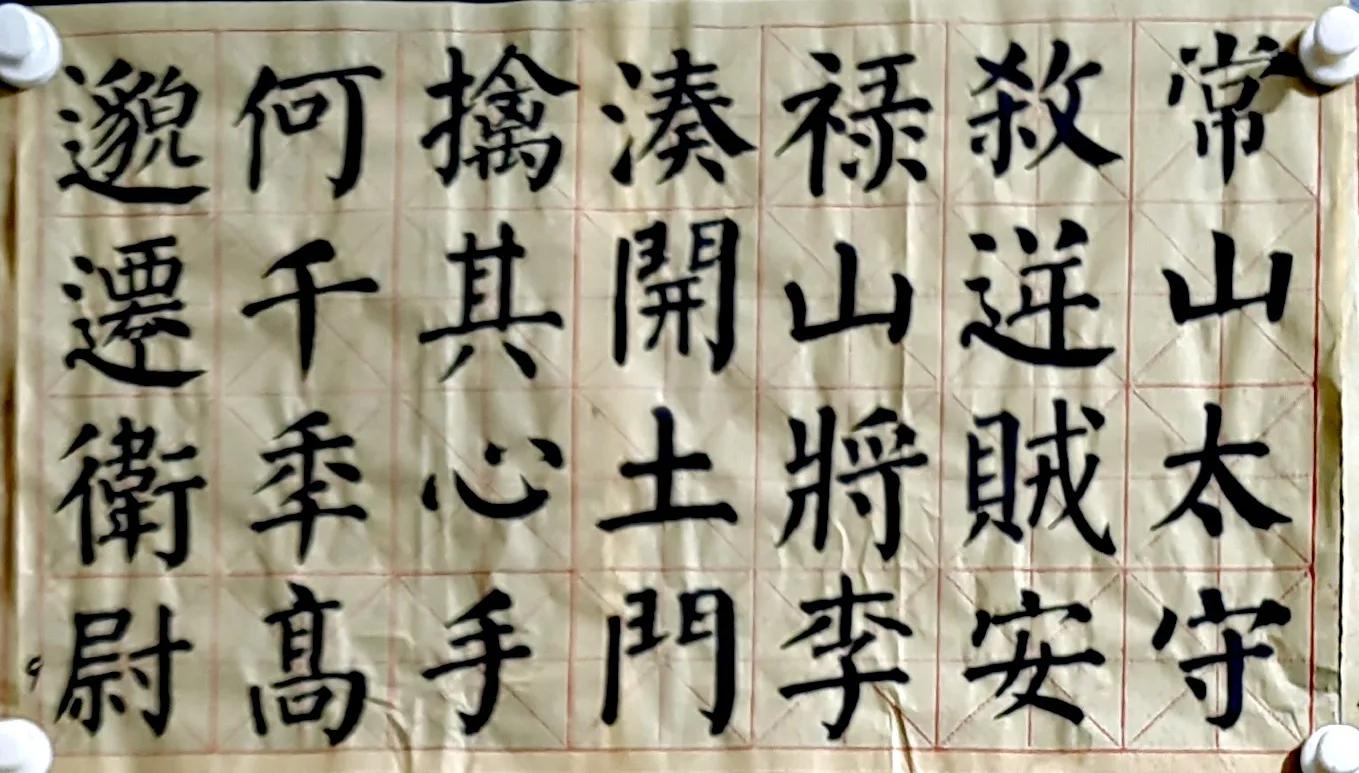 常山太守
殺逆賊安
禄山將李
湊開土門
擒其心手
何千秊髙
邈遷衛尉